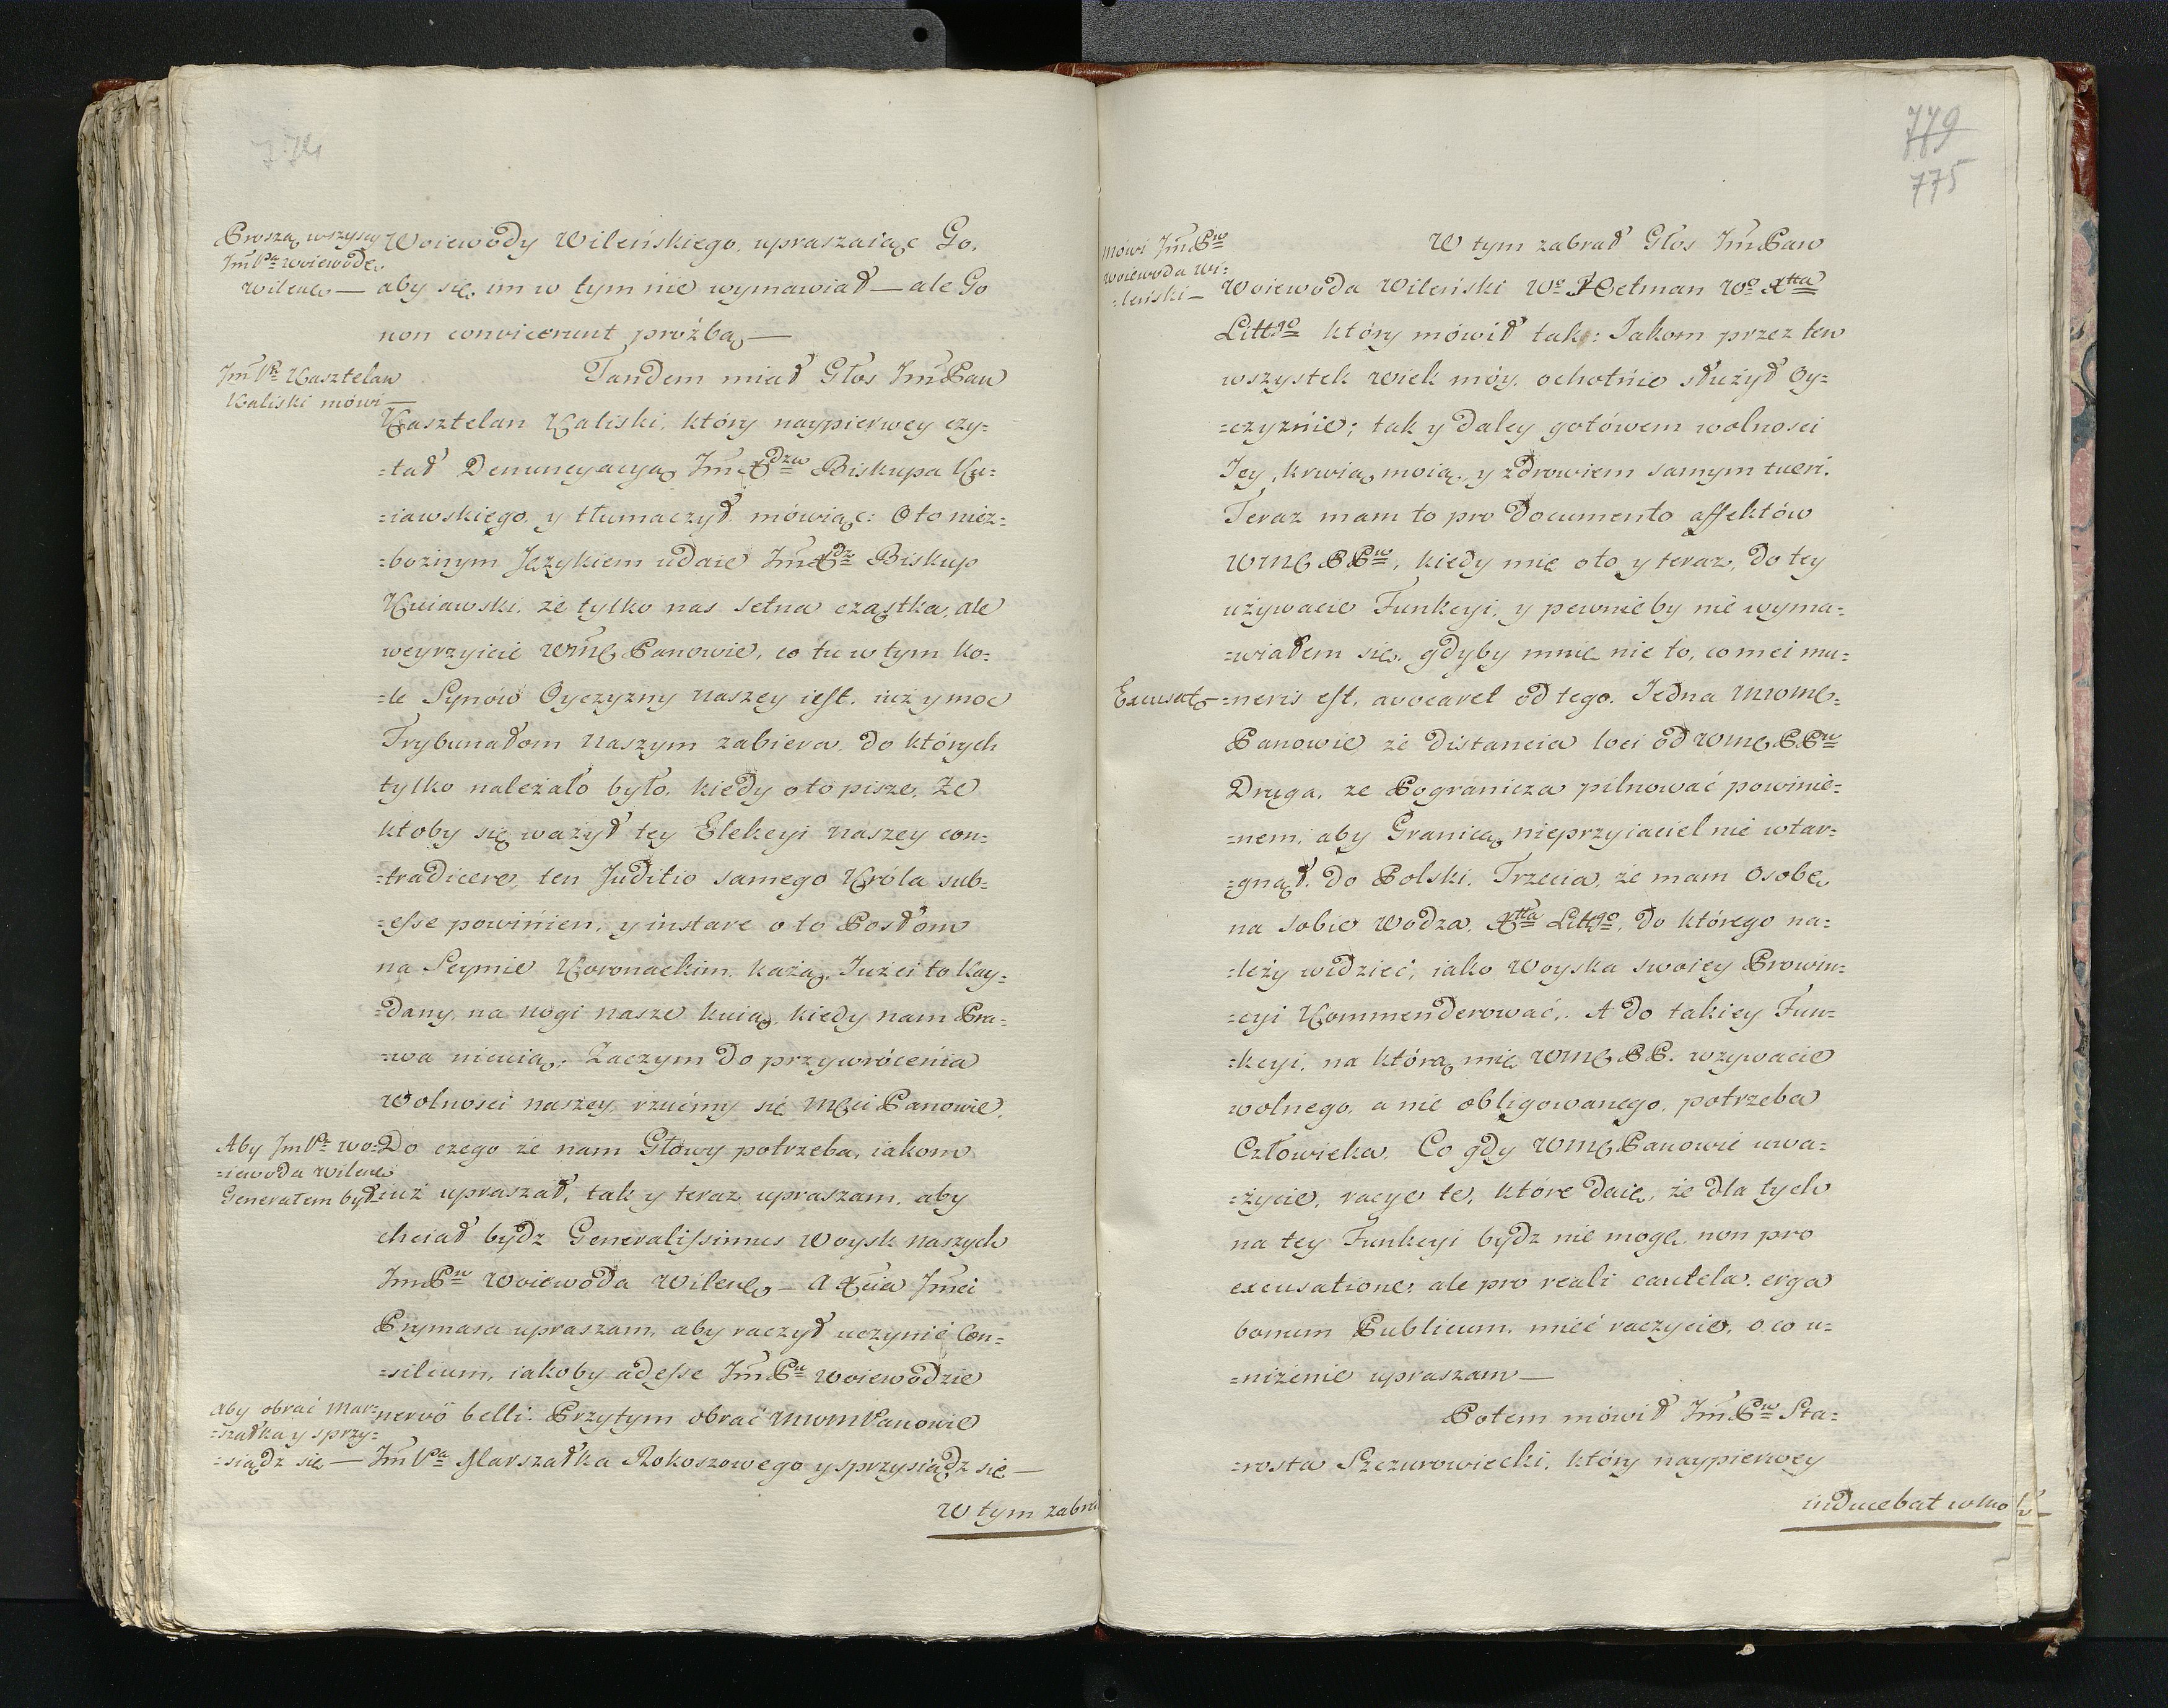 774
Proszą wszyscy
Im Pa Woiewodę
Wileńs —
Woiewody Wileńskiego, upraszaiąc Go,
aby się im w tym nie wymawiał — ale Go
non convicerunt proźbą —
Im Pn Kasztelan
Kaliski mówi —
Tandem miał Głos Im Pan
Kasztelan Kaliski, który naypierwey czy=
=tał Denuncyacyą Im Xdza Biskupa Ku=
=iawskiego, y tłumaczył mówiąc: Oto niez=
=bożnym Językiem udaie Im Xdz Biskup
Kuiawski, że tylko nas setna cząstka, ale
weyrzyicie WMć Panowie, co tu w tym ko=
=le Synów Oyczyzny naszey iest, iuż y moc
Trybunałom naszym zabiera, do których
tylko należało było, kiedy oto pisze, że
ktoby się ważył tey Elekcyi naszey con=
=tradicere, ten Juditio samego Króla sub=
=esse powinien, y instare o to Posłom
na Seymie Koronackim, każą. Już ci to Kay=
=dany, na nogi nasze kuią, kiedy nam Pra=
=wa nicuią. Zaczym do przywrócenia
Wolnosci naszey, rzućmy się Mći Panowie.
Aby Im Pn Wo=
=iewoda Wileńs
Generałem był
Do czego że nam Głowy potrzeba, iakom
iuż upraszał, tak y teraz upraszam, aby
chciał bydz Generalissimus Woysk naszych
Im Pn Woiewoda Wileńs — a Xcia Jmci
Prymasa upraszam, aby raczył uczynić Con=
=silium, iakoby adesse Im Pn Woiewodzie
Aby obrać Mar=
=szałka y sprzy=
=siądz się —
nervo belli. Przytym obrać MWM Panowie
Im Pa Marszałka Rokoszowego y sprzysiądz się —
W tym zabra
779
775
Mówi Im Pn
Woiewoda Wi=
=leński —
W tym zabrał Głos Im Pan
Woiewoda Wileński Wo Hetman Wo Xtta
Littgo który mówił tak: Jakom przez ten
wszystek wiek móy, ochotnie służył Oy=
=czyznie; tak y daley gotówem wolnosci
Jey, krwią moią, y zdrowiem samym tueri.
Teraz mam to pro documento affektów
WMć PPw, kiedy mię oto y teraz, do tey
używacie Funkcyi, y pewnie by nie wyma=
=wiałem się, gdyby mnie nie to, co mei mu=
Excusat —
=neris est, avocaret od tego. Jedna MWMć
Panowie że distancia loci od WMć PPw
Druga, ze Pogranicza pilnować powinie=
=nem, aby Granicą nieprzyiaciel nie wtar=
=gnął, do Polski. Trzecia, że mam Osobę
na sobie Wodza, Xtta Littgo, do którego na=
=leży widzieć, iako Woyska swoiey Prowin=
=cyi Kommenderować. A do takiey Fun=
=kcyi, na którą mię WMć PP. wzywacie
wolnego, a nie obligowanego, potrzeba
Człowieka. Co gdy WMć Panowie uwa=
=życie, racye te, które daię, że dla tych
na tey Funkcyi bydz nie mogę, non pro
excusatione, ale pro reali cautela, erga
bonum Publicum, mieć raczycie, o co u=
=niżenie upraszam —
Potem mówił Im Pn Sta=
=rosta Szczurowiecki, który naypierwey
inducebat